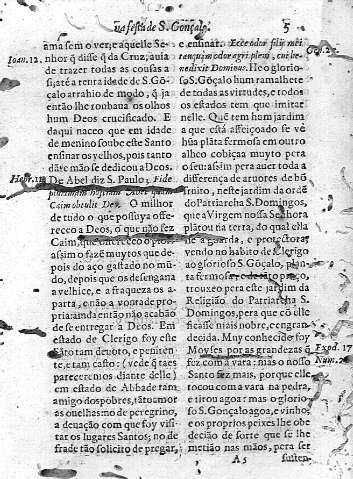 na festa de S. Gonçalo. 5
ama sem o ver, e aquelle Se-
nhor q̃ disse q̃ da Cruz, auia
de trazer todas as cousas a
si, atè a tenra idade de S. Gõ-
çalo atrahio de modo, q̃ ja
então lhe roubaua os olhos
hum Deos crucificado. E
daqui naceo que em idade
de menino soube este Santo
ensinar os velhos, pois tanto
dãte mão se dedicou a Deos.
De Abel diz S. Paulo, Fide
plurimam hostiam Abel quam
Caim obtulit Deo. O milhor
de tudo o que possuya offe-
receo a Deos, o que não fez
Caim, que offereceo o peor:
assim o fazẽ muytos que de-
pois do aço gastado no mũ-
do, depois que os desengana
a velhice, e a fraqueza os a-
parta, e não a vontade pro-
pria ainda então não acabão
de se entregar a Deos. Em
estado de Clerigo foy este
Sãto tam deuoto, e peniten-
te, e tam casto: (vede q̃ taes
pareceremos diante delle)
em estado de Abbade tam
amigo dos pobres, tãto amor
as ouelhas: no de peregrino,
a deuação com que foy visi-
tar os lugares Santos; no de
frade tão solicito de pregar,
Ioan. 12.
Hebr. 11.
e ensinar. Ecce odor filij mei
tanquim odor agri pleni, cui be-
nedixit Dominus. He o glorio-
so S. Gõçalo hum ramalhete
de todas as virtudes, e todos
os estados tem que imitar
nelle. Quẽ tem hum jardim
a que està affeiçoado se vè
hũa plãta fermosa em outro
alheo cobiçaa muyto pera
o seu: assim pera auer toda a
differença de aruores de bõ
fruito, neste jardim da ordẽ
do Patriarcha S. Domingos,
que a Virgem nossa Senhora
plãtou na terra, do qual ella
he a guarda, e protectora,
vendo no habito de Clerigo
ao glorioso S. Gõçalo, plan-
ta fermosa de preço,
trouxeo pera este jardim da
Religião do Patriarcha S.
Domingos, pera que cõ elle
ficasse mais nobre, e engran-
decida. Muy conhecido foy
Moyses por as grandezas q̃
fez com a vara: mas o nosso
Santo fez mais, porque elle
tocou com a vara na pedra,
e tirou agoa: mas o glorio-
so S. Gonçalo agoa, e vinho,
e os proprios peixes lhe obe-
decião de sorte que se lhe
metião nas mãos, pera ser
Gen. 27.
Exod. 17
Num. 20
A 5 susten-